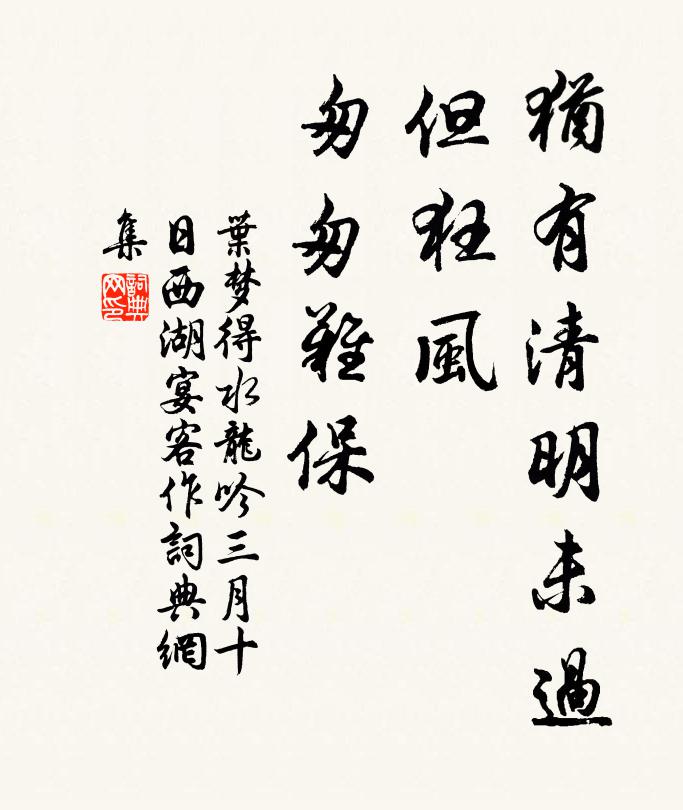 猶有清明未過
但狂風
匆匆難保
葉梦得水龍吟三月十
日西湖宴客作詞典網
集
詞典
网印